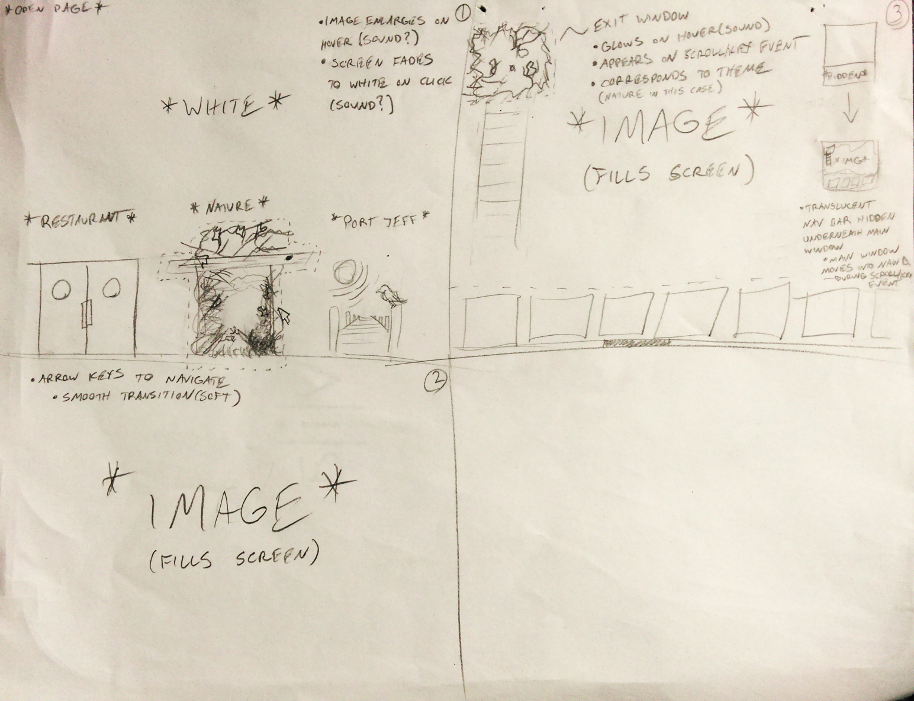 *OPEN PAGE*
①
• IMAGE ENLARGES ON
HOVER (SOUND?)
• SCREEN FADES
TO WHITE ON CLICK
(SOUND?)
*WHITE*
*RESTAURANT*
*NATURE*
*PORT JEFF*
②
• ARROW KEYS TO NAVIGATE
• SMOOTH TRANSITION (SOFT)
*IMAGE*
(FILLS SCREEN)
③
EXIT WINDOW
• GLOWS ON HOVER (SOUND)
• APPEARS ON SCROLL/KEY EVENT
• CORRESPONDS TO THEME
(NATURE IN THIS CASE)
*IMAGE*
(FILLS SCREEN)
*HIDDEN*
*IMG*
• TRANSLUCENT
NAV BAR HIDDEN
UNDERNEATH MAIN
WINDOW
• MAIN WINDOW
MOVES INTO NAV
DURING SCROLL/KEY
EVENT